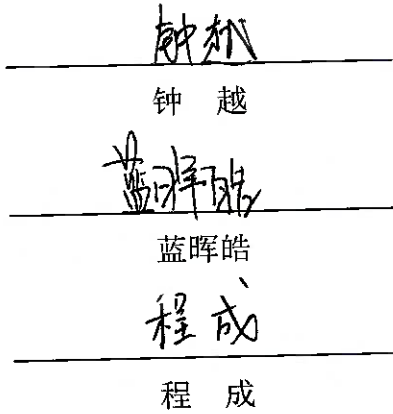 钟越
钟 越
蓝晖皓
蓝晖皓
程成
程 成